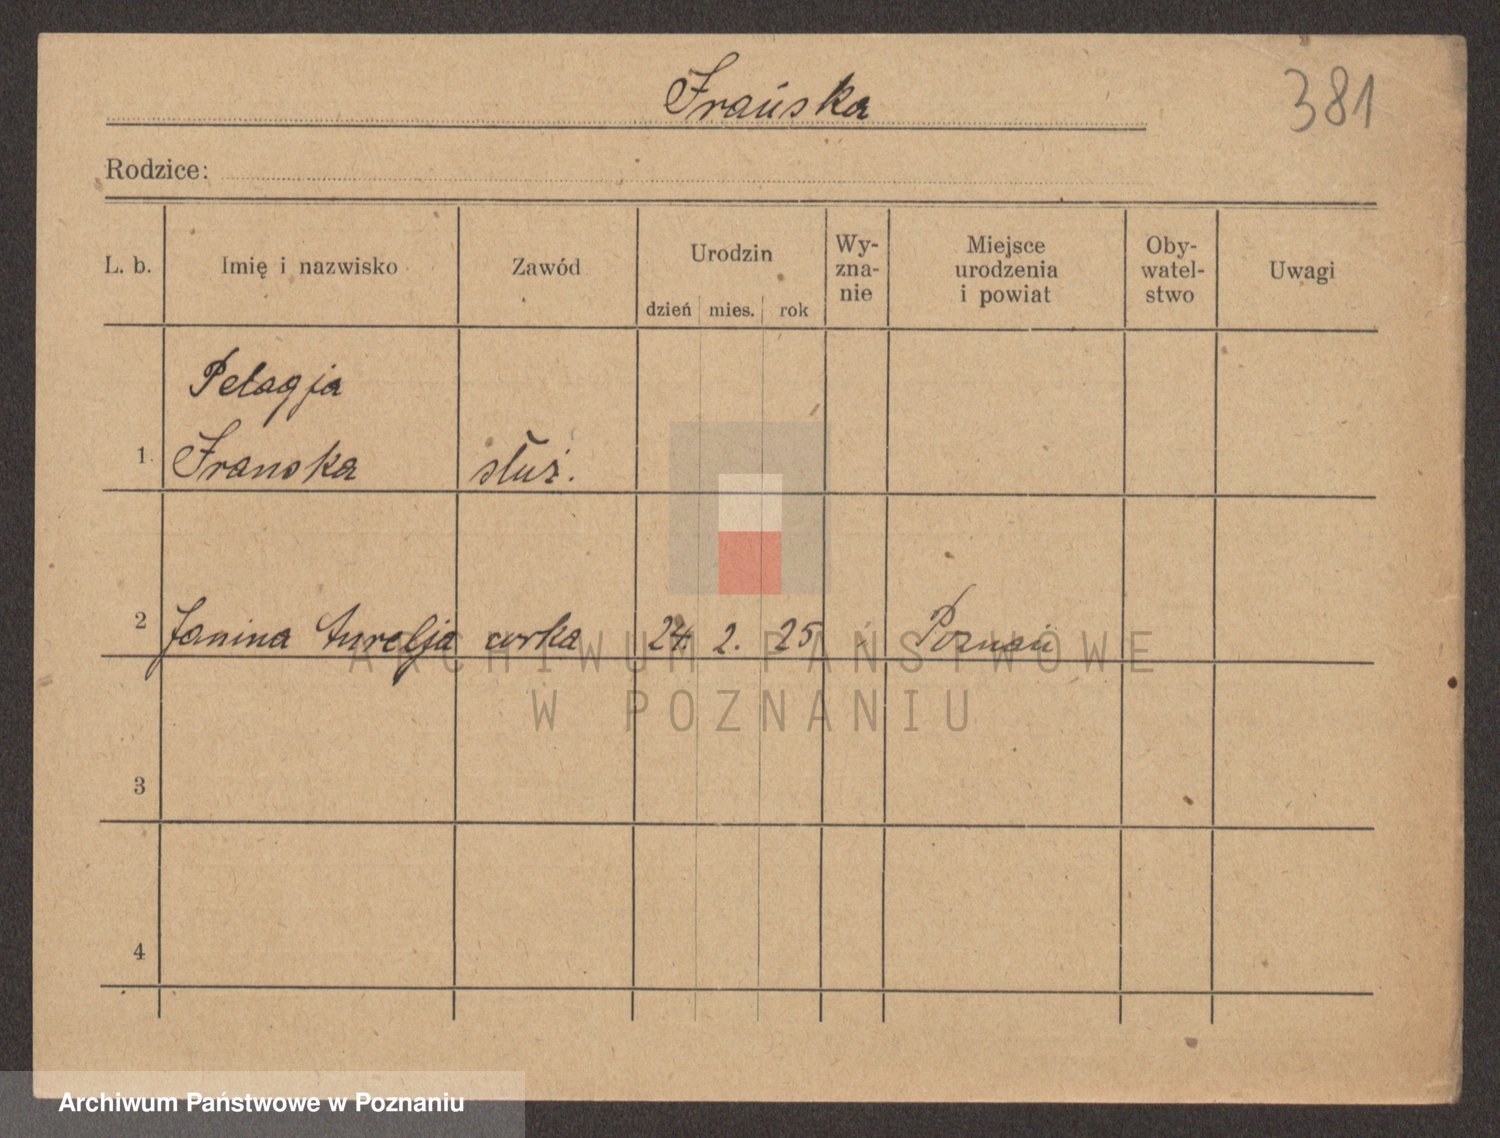 Frańska
381
Rodzice:
L. b.
Imię i nazwisko
Zawód
Urodzin
dzień mies. rok
Wy-
zna-
nie
Miejsce
urodzenia
i powiat
Oby-
watel-
stwo
Uwagi
Pelagja
1. Franska służ.
2 Janina Aurelja córka 24. 2. 25 Poznań
3
4
ARCHIWUM PAŃSTWOWE
W POZNANIU
Archiwum Państwowe w Poznaniu